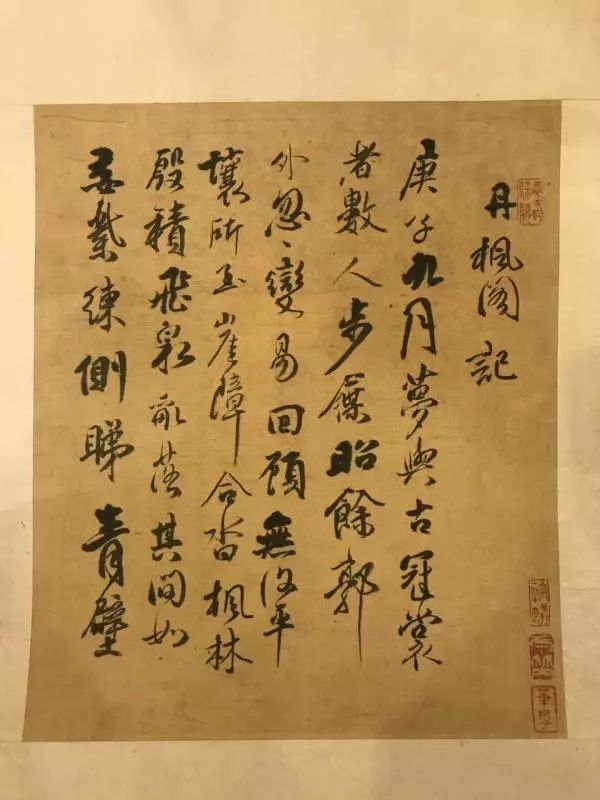 丹楓閣記
庚子九月夢與古冠裳
者數人步屧昭餘郭
外忽〻變易回顧無復平
壤所至崖障合沓楓林
殷積飛泉落其間如
縶練側睇青壁